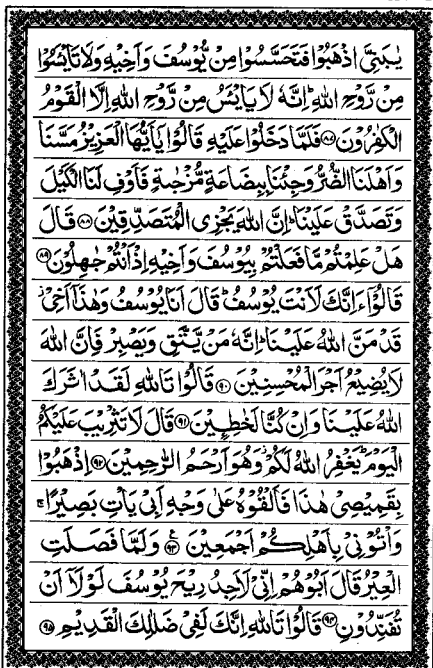 يٰبَنِيَّ اذْهَبُوْا فَتَحَسَّسُوْا مِنْ يُّوْسُفَ وَاَخِيْهِ وَلَا تَايْـَٔسُوْا
مِنْ رَّوْحِ اللّٰهِ ؕ اِنَّهٗ لَا يَايْـَٔسُ مِنْ رَّوْحِ اللّٰهِ اِلَّا الْقَوْمُ
الْكٰفِرُوْنَ ۝۸۷ فَلَمَّا دَخَلُوْا عَلَيْهِ قَالُوْا يٰۤاَيُّهَا الْعَزِيْزُ مَسَّنَا
وَاَهْلَنَا الضُّرُّ وَجِئْنَا بِبِضَاعَةٍ مُّزْجٰىةٍ فَاَوْفِ لَنَا الْكَيْلَ
وَتَصَدَّقْ عَلَيْنَا ؕ اِنَّ اللّٰهَ يَجْزِى الْمُتَصَدِّقِيْنَ ۝۸۸ قَالَ
هَلْ عَلِمْتُمْ مَّا فَعَلْتُمْ بِيُوْسُفَ وَاَخِيْهِ اِذْ اَنْتُمْ جٰهِلُوْنَ ۝۸۹
قَالُوْۤا ءَاِنَّكَ لَاَنْتَ يُوْسُفُ ؕ قَالَ اَنَا يُوْسُفُ وَهٰذَاۤ اَخِيْ ؗ
قَدْ مَنَّ اللّٰهُ عَلَيْنَا ؕ اِنَّهٗ مَنْ يَّتَّقِ وَيَصْبِرْ فَاِنَّ اللّٰهَ
لَا يُضِيْعُ اَجْرَ الْمُحْسِنِيْنَ ۝۹۰ قَالُوْا تَاللّٰهِ لَقَدْ اٰثَرَكَ
اللّٰهُ عَلَيْنَا وَاِنْ كُنَّا لَخٰطِـِٕيْنَ ۝۹۱ قَالَ لَا تَثْرِيْبَ عَلَيْكُمُ
الْيَوْمَ ؕ يَغْفِرُ اللّٰهُ لَكُمْ ؗ وَهُوَ اَرْحَمُ الرّٰحِمِيْنَ ۝۹۲ اِذْهَبُوْا
بِقَمِيْصِيْ هٰذَا فَاَلْقُوْهُ عَلٰى وَجْهِ اَبِيْ يَاْتِ بَصِيْرًا ۚ
وَاْتُوْنِيْ بِاَهْلِكُمْ اَجْمَعِيْنَ ۝۹۳ ع وَلَمَّا فَصَلَتِ
الْعِيْرُ قَالَ اَبُوْهُمْ اِنِّيْ لَاَجِدُ رِيْحَ يُوْسُفَ لَوْلَاۤ اَنْ
تُفَنِّدُوْنِ ۝۹۴ قَالُوْا تَاللّٰهِ اِنَّكَ لَفِيْ ضَلٰلِكَ الْقَدِيْمِ ۝۹۵